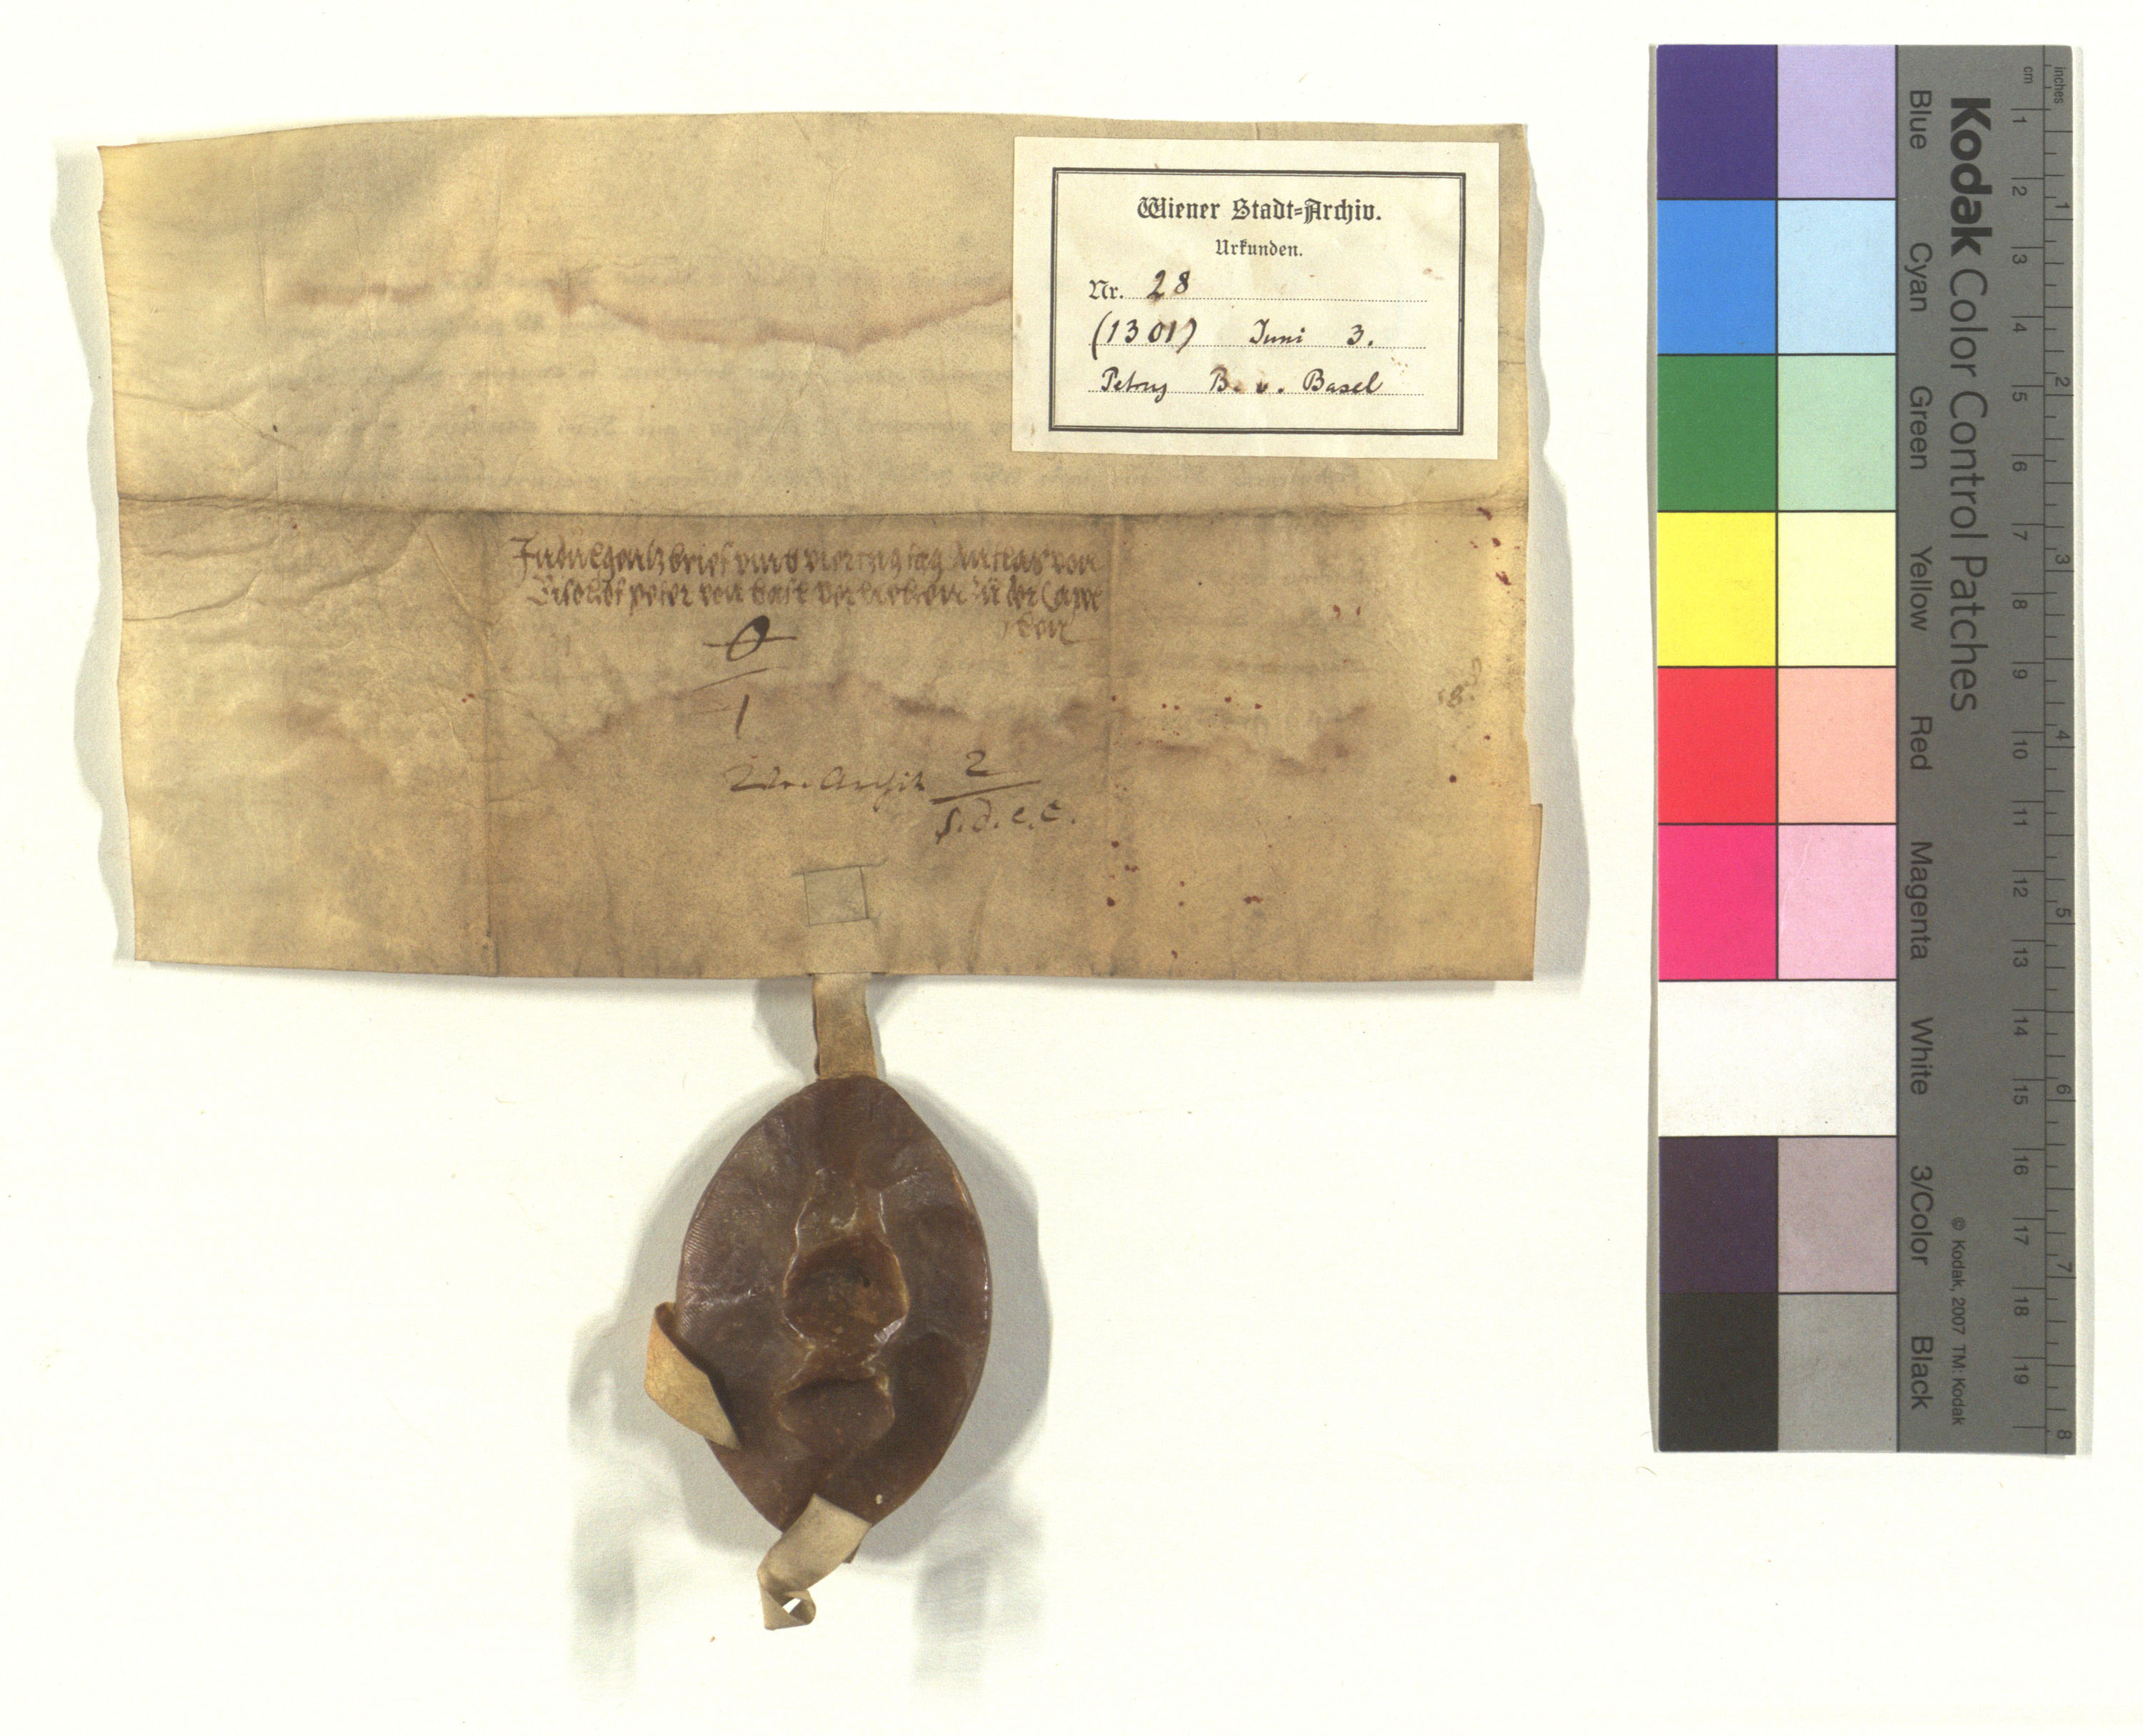 Wiener Stadt=Archiv.
Urkunden.
Nr. 28
(1301) Juni 3.
Petrus B. v. Basel
Indulgentzbrief vmb viertzig tag Antlas von
Bischof peter von Basl verlichen zu der Capel
len
0
1
2
s.d.e.c.
8
Kodak Color Control Patches
Blue Cyan Green Yellow Red Magenta White 3/Color Black
© Kodak, 2007 TM: Kodak
cm 1 2 3 4 5 6 7 8 9 10 11 12 13 14 15 16 17 18 19
inches 1 2 3 4 5 6 7 8